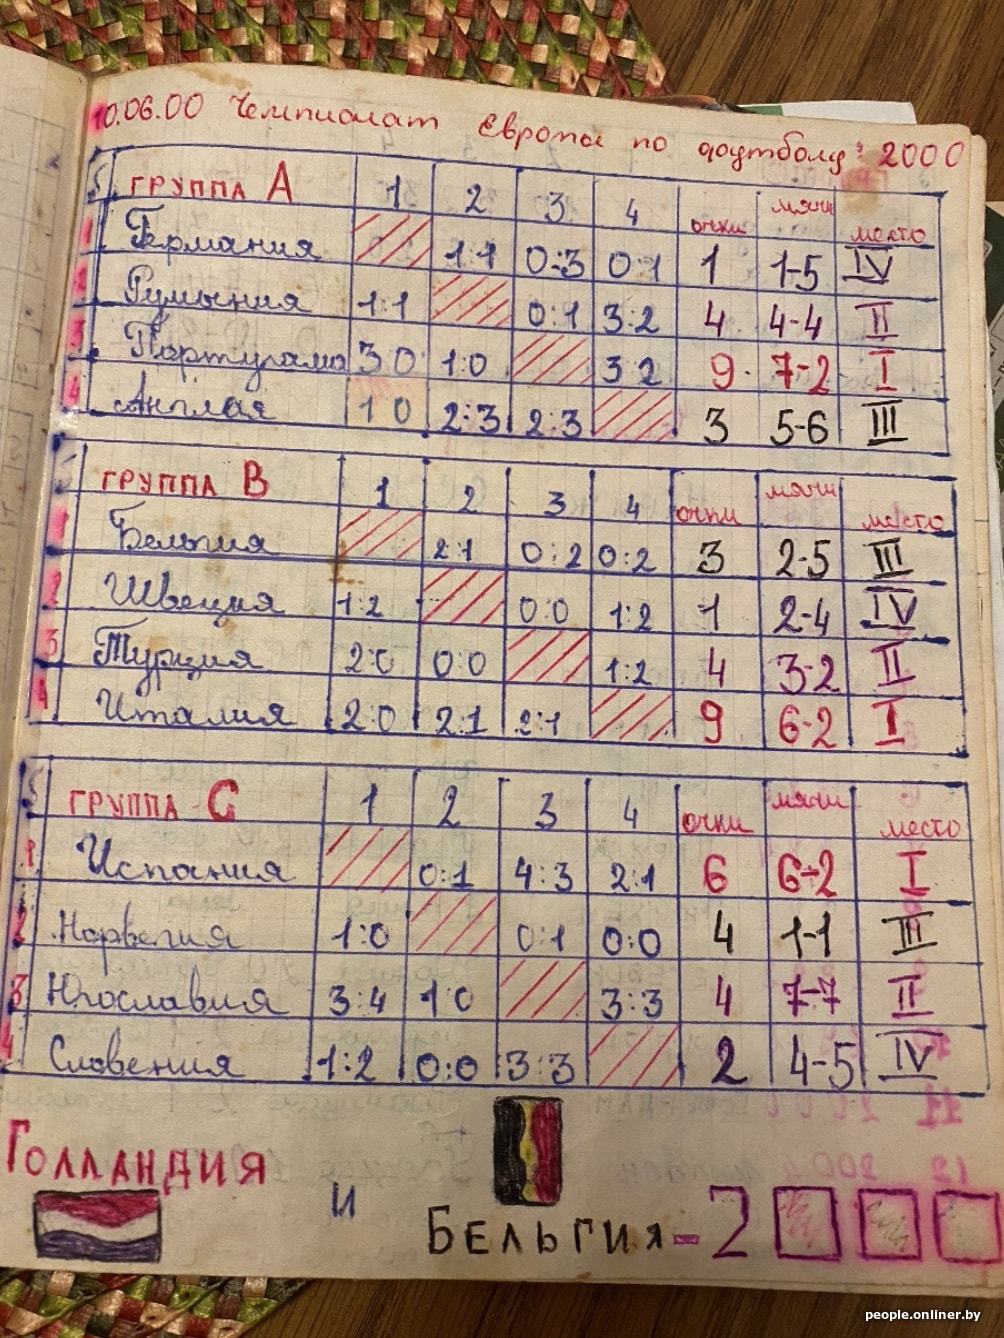 10.06.00 Чемпионат Европы по футболу: 2000
ГРУППА А 1 2 3 4 очки мячи место
1 Германия 1:1 0:3 0:1 1 1-5 IV
2 Румыния 1:1 0:1 3:2 4 4-4 II
3 Португалия 3 0 1:0 3 2 9 7-2 I
4 Англия 1 0 2:3 2:3 3 5-6 III
ГРУППА В 1 2 3 4 очки мячи место
1 Бельгия 2:1 0:2 0:2 3 2-5 III
2 Швеция 1:2 0:0 1:2 1 2-4 IV
3 Турция 2:0 0:0 1:2 4 3-2 II
4 Италия 2:0 2:1 2:1 9 6-2 I
ГРУППА С 1 2 3 4 очки мячи место
1 Испания 0:1 4:3 2:1 6 6-2 I
2 Норвегия 1:0 0:1 0:0 4 1-1 III
3 Югославия 3:4 1:0 3:3 4 7-7 II
4 Словения 1:2 0:0 3:3 2 4-5 IV
ГОЛЛАНДИЯ
И
БЕЛЬГИЯ-2
people.onliner.by